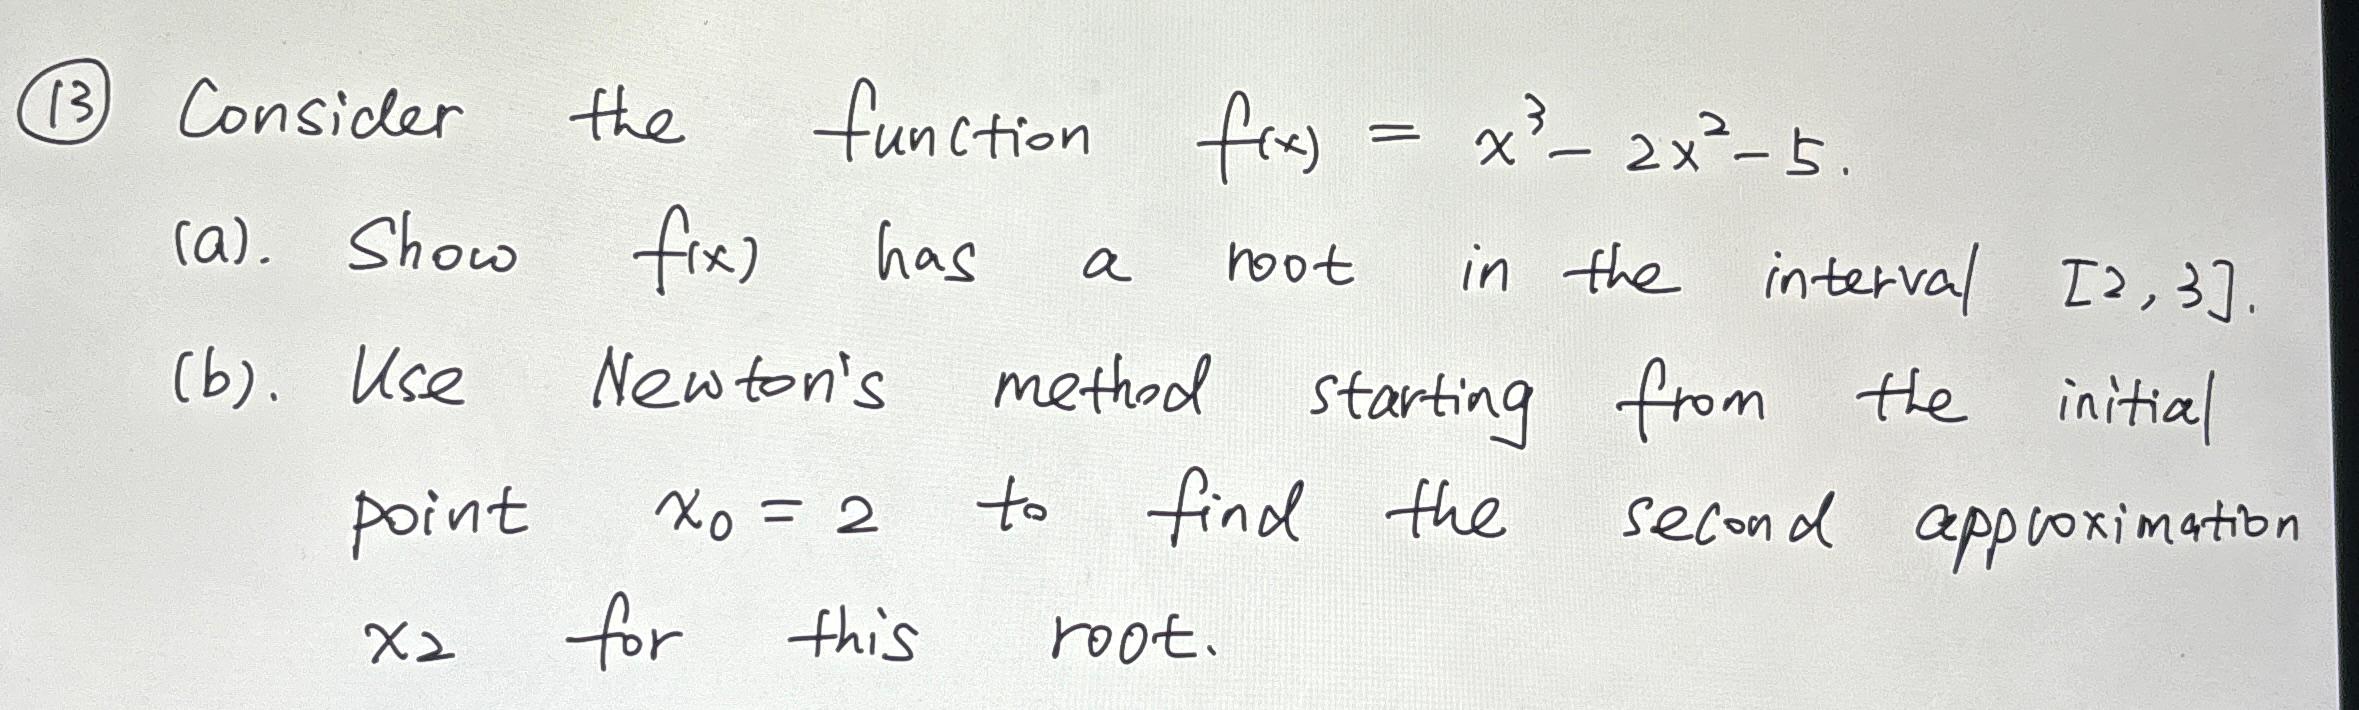 ⑬ Consider the function f(x) = x³ - 2x² - 5.
(a). Show f(x) has a root in the interval [2,3].
(b). Use Newton's method starting from the initial
point x₀ = 2 to find the second approximation
x₂ for this root.